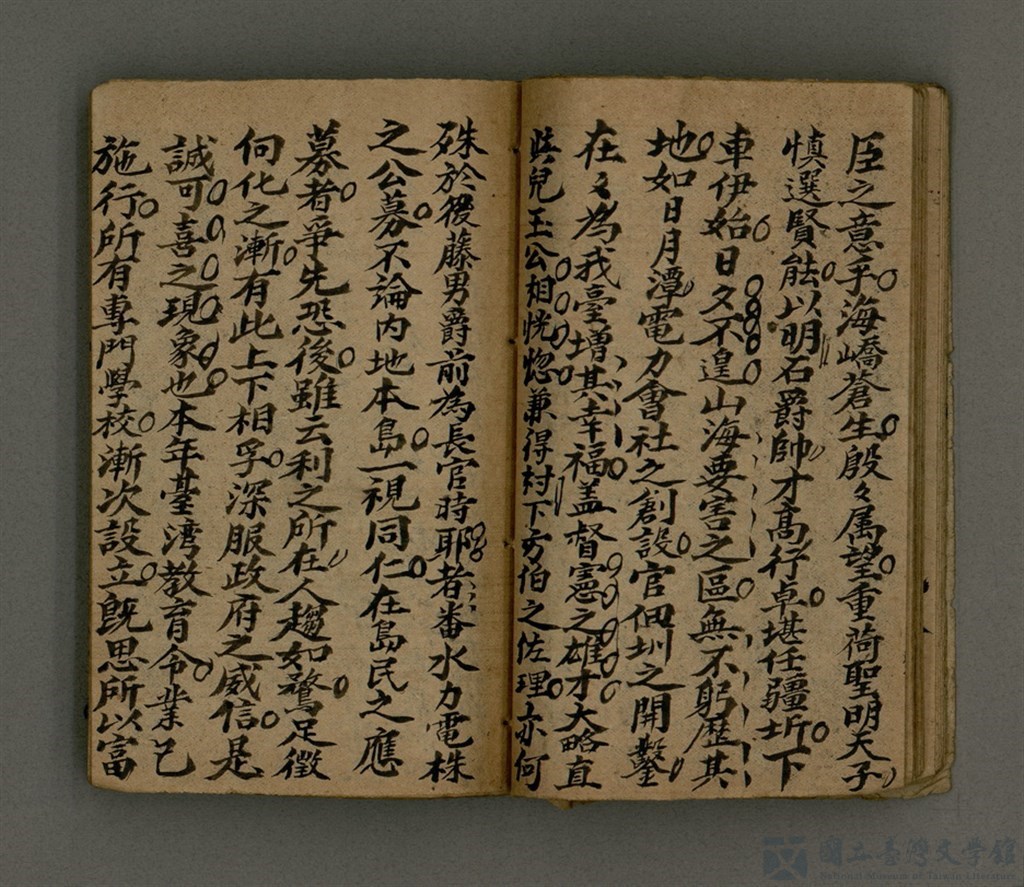 臣之意乎海嶠蒼生殷々属望重荷聖明天子
慎選賢能以明石爵帥才高行卓堪任疆圻下
車伊始日夕不遑山海要害之區無不躬歷其
地如日月潭電力會社之創設官佃圳之開鑿
在々為我臺增其幸福盖督憲之雄才大略直
與兒玉公相恍惚兼得村下方伯之佐理亦何
硃於後藤男爵前為長官時耶者番水力電株
之公募不論内地本島一視同仁在島民之應
募者爭先恐後雖云利之所在人趨如騖足徵
向化之漸有此上下相孚深服政府之威信是
誠可喜之現象也本年臺湾教育令業已
施行所有專門學校漸次設立既思所以富
國立臺灣文學館
National Museum of Taiwan Literature